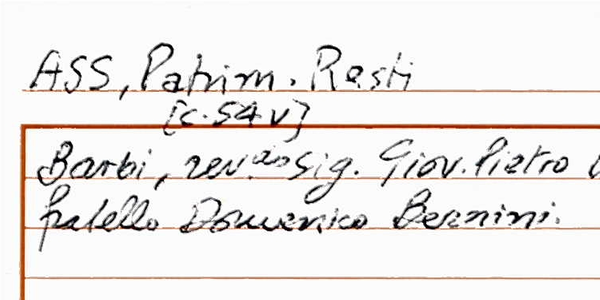 ASS, Patrim. Resti
[c. 54 v]
Barbi, rev.do Sig. Giov. Pietro
fratello Domenico Bernini.